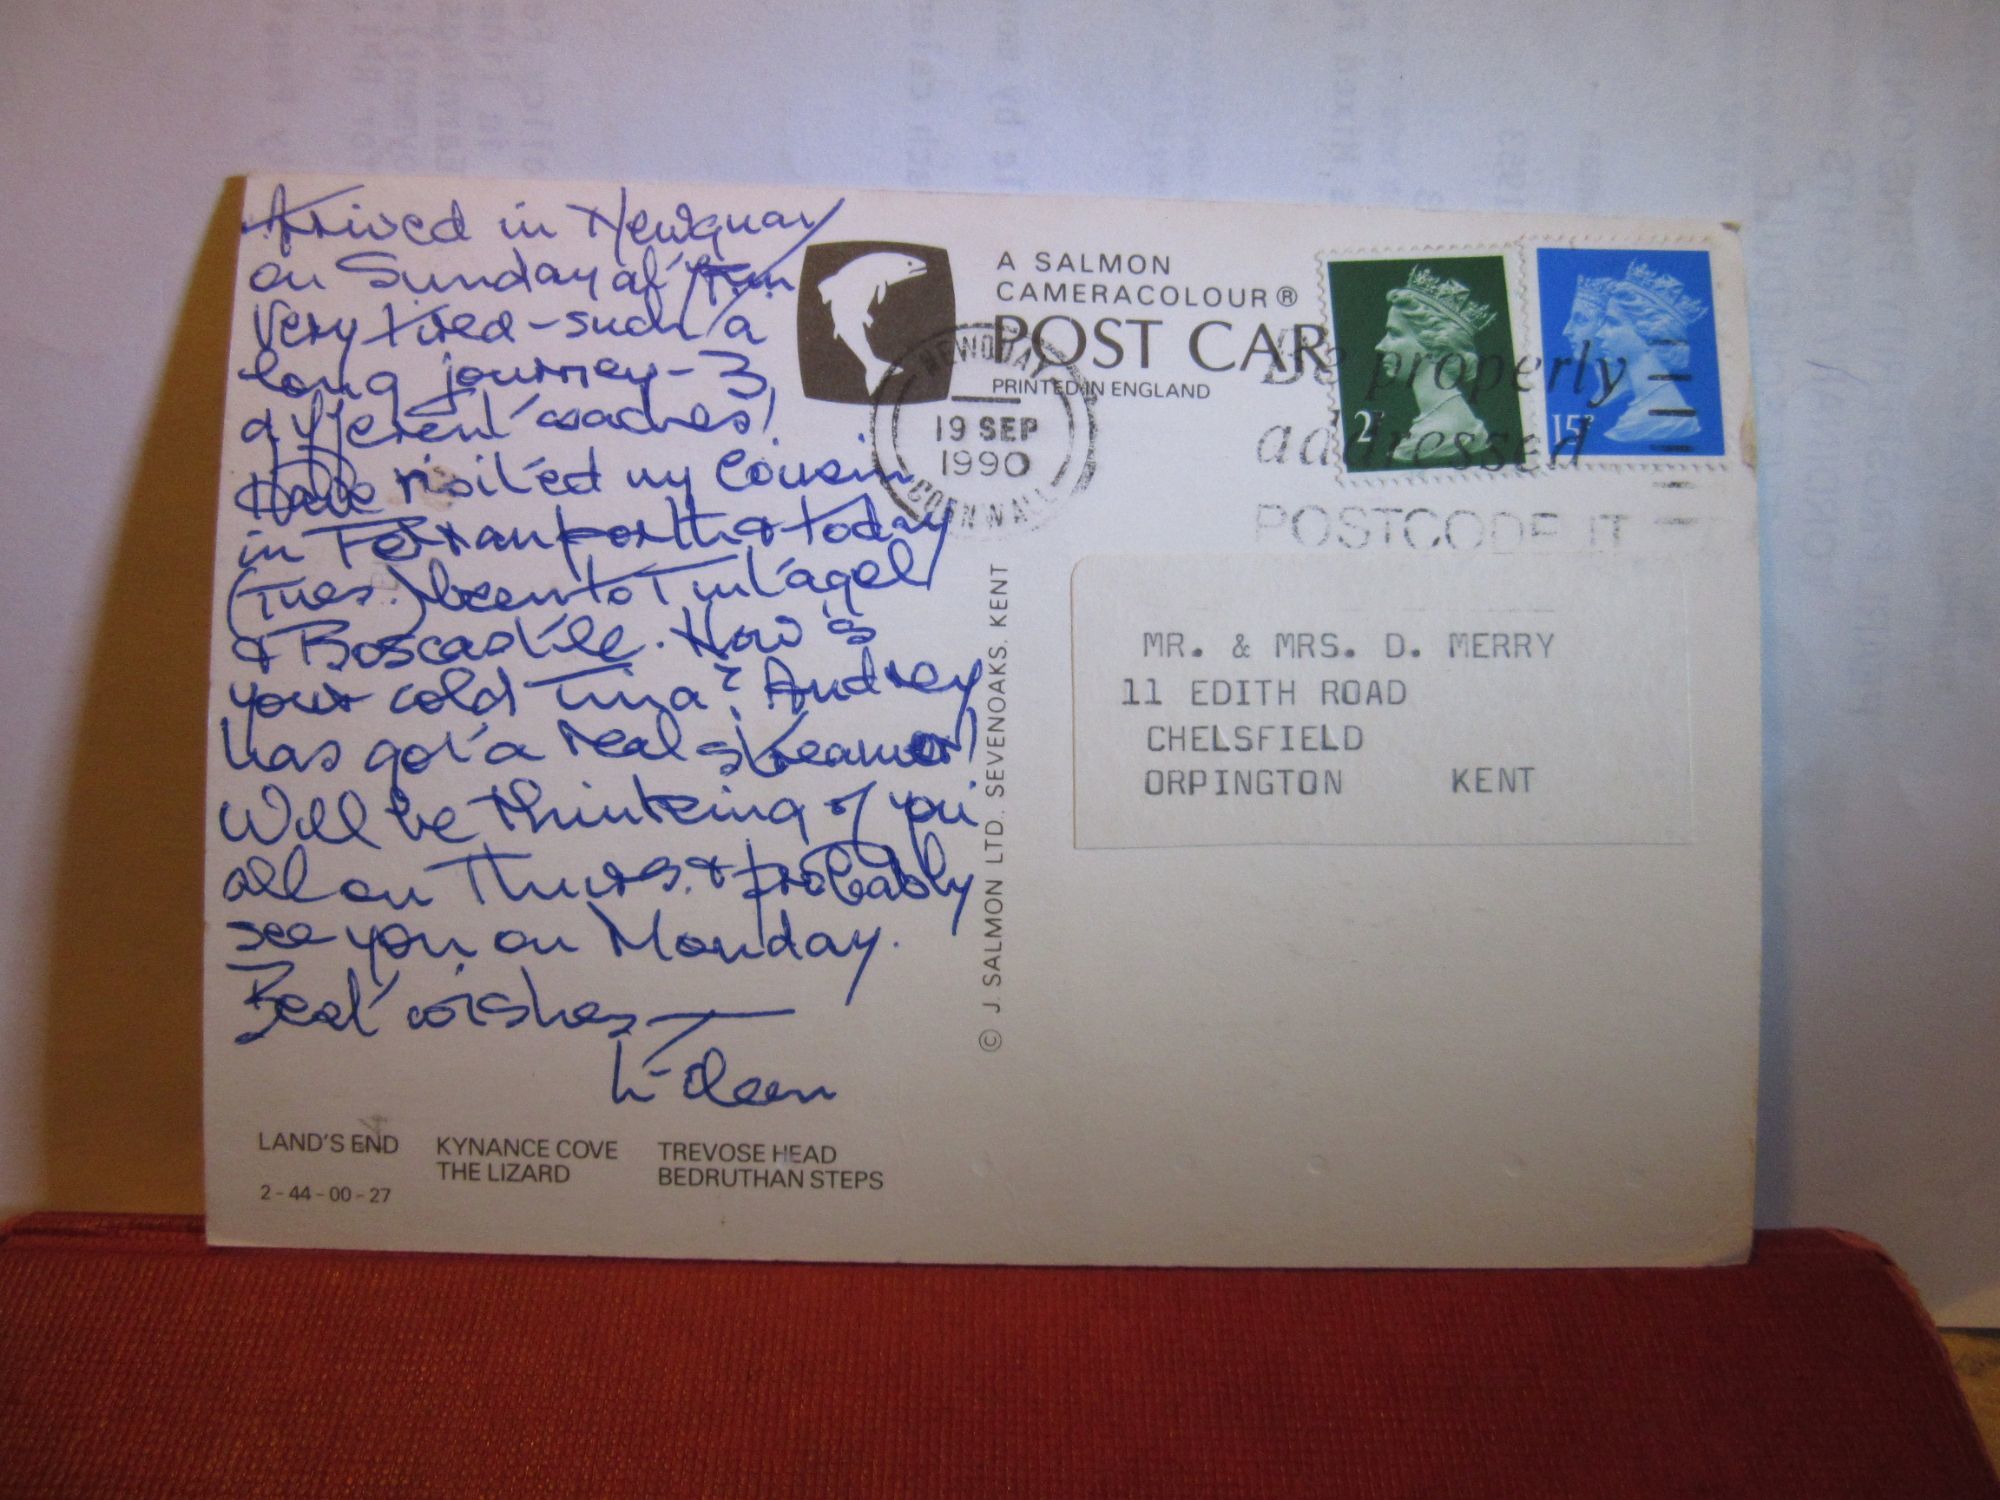 Arrived in Newquay
on Sunday af'tern
Very tired - such a
long journey - 3
different coaches!
Have visited my Cousin
in Perranporth & today
(Tues.) been to Tintagel
& Boscastle. How's
your cold Tina? Audrey
has got a real streamer!
Will be thinking of you
all on Thurs. & probably
see you on Monday.
Best wishes
LAND'S END
2-44-00-27
KYNANCE COVE
THE LIZARD
TREVOSE HEAD
BEDRUTHAN STEPS
© J. SALMON LTD. SEVENOAKS. KENT
A SALMON
CAMERACOLOUR ®
POST CAR
PRINTED IN ENGLAND
NEWQUAY
19 SEP
1990
CORNWALL
Be properly
addressed
POSTCODE IT
2P
15P
MR. & MRS. D. MERRY
11 EDITH ROAD
CHELSFIELD
ORPINGTON KENT